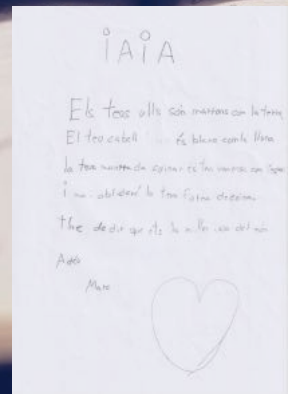 iAiA
Els teus ulls són marrons com la terra
El teu cabell és blanc com la lluna
la teva manera de
i no oblidaré la teva forma
t'he de dir que ets la millor iaia del món
Adéu
Marc